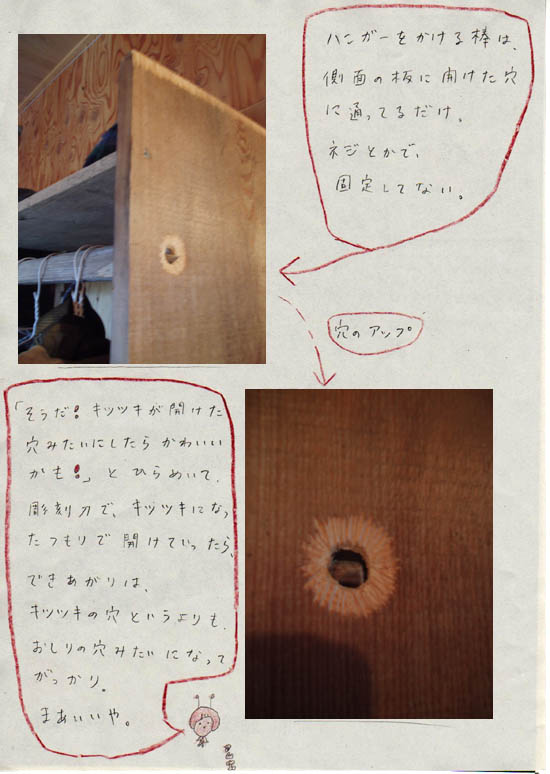 ハンガーをかける棒は、
側面の板に開けた穴
に通ってるだけ。
ネジとかで、
固定してない。
穴のアップ
「そうだ!キツツキが開けた
穴みたいにしたらかわいい
かも!」とひらめいて、
彫刻刀で、キツツキになっ
たつもりで開けていったら、
できあがりは、
キツツキの穴というよりも、
おしりの穴みたいになって
がっかり。
まあいいや。